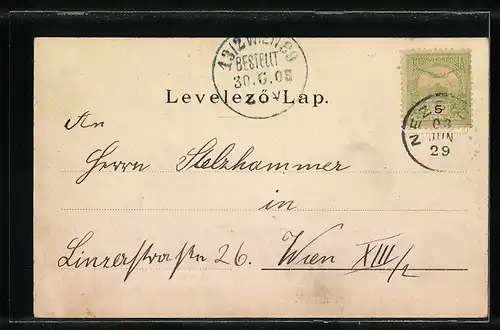 13/2 WIEN 89
BESTELLT
30.6.03
V
Levelező-Lap.
5
NEZ
03
JUN
29
An
Herrn Stelzhammer
in
Linzerstraße 26. Wien XIII/2